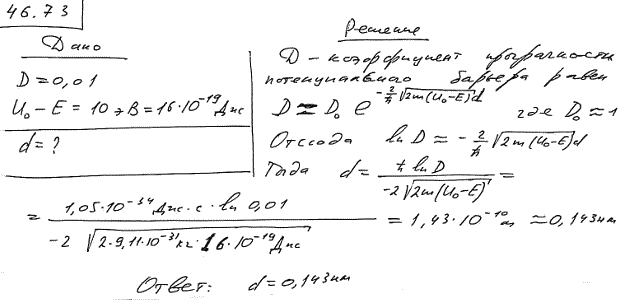 46.73
Дано
D = 0,01
U₀ - E = 10 эВ = 16·10⁻¹⁹ Дж
d = ?
Решение
D - коэффициент прозрачности
потенциального барьера равен
D = D₀ e^(-2/ħ √(2m(U₀-E)) d) где D₀ ≈ 1
Отсюда ln D ≈ - 2/ħ √(2m(U₀-E)) d
Тогда d = ħ ln D / (-2√(2m(U₀-E))) =
= 1,05·10⁻³⁴ Дж·с·ln 0,01 / (-2 √(2·9,11·10⁻³¹ кг·16·10⁻¹⁹ Дж)) = 1,43·10⁻¹⁰ м ≈ 0,143 нм
Ответ: d = 0,143 нм